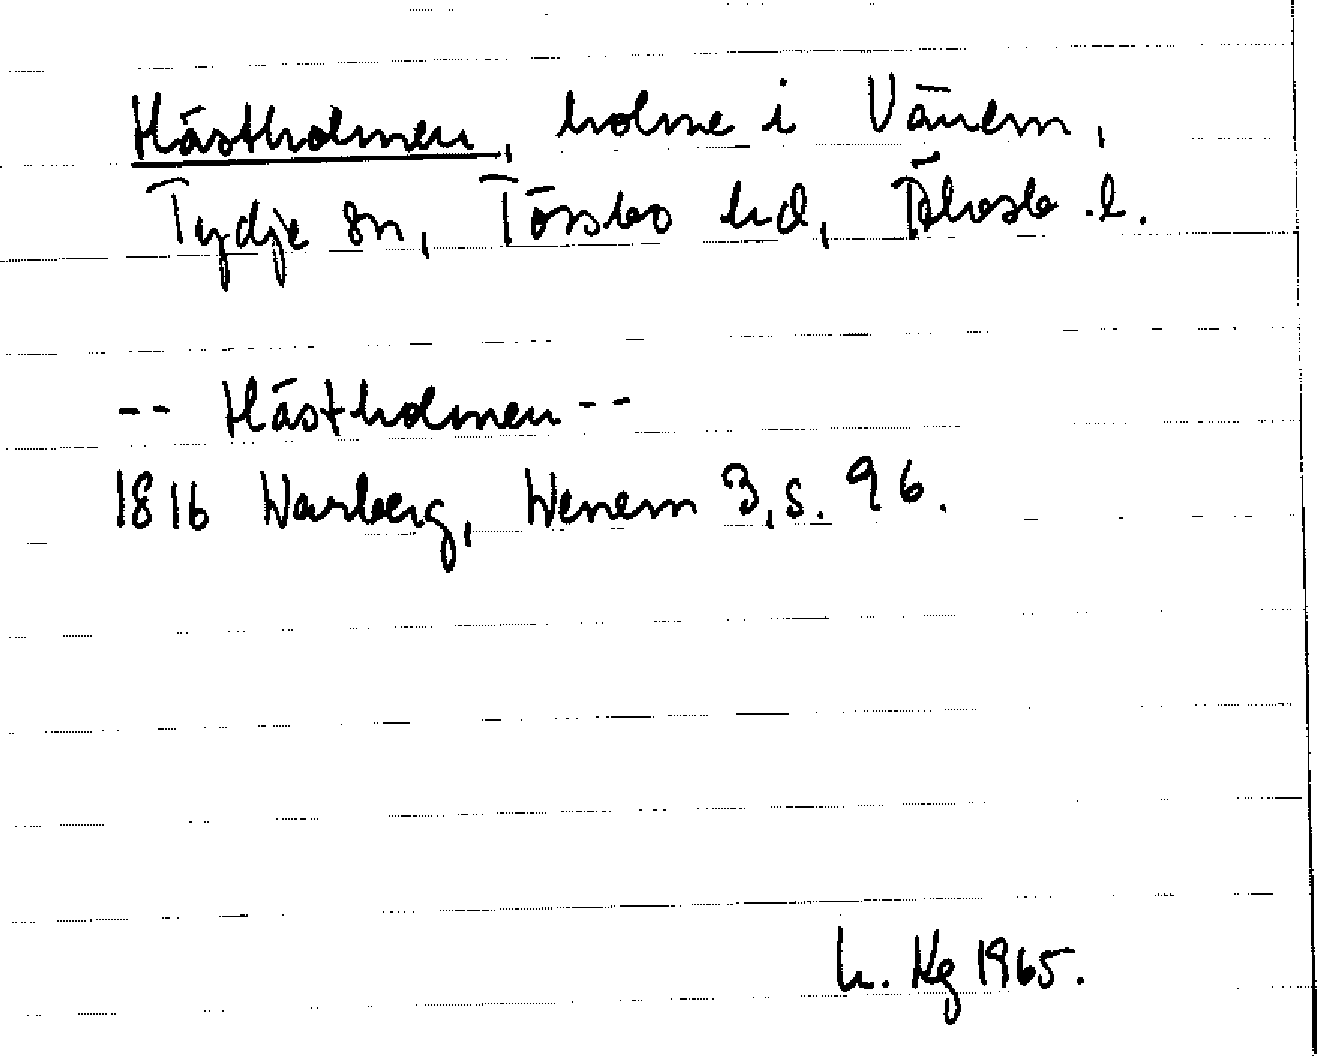 Hästholmen, holme i Vänern,
Tydje sn, Tössbo hd, Älvsb. l.
-- Hästholmen --
1816 Warberg, Wenern 3, s. 96.
h. Kg 1965.